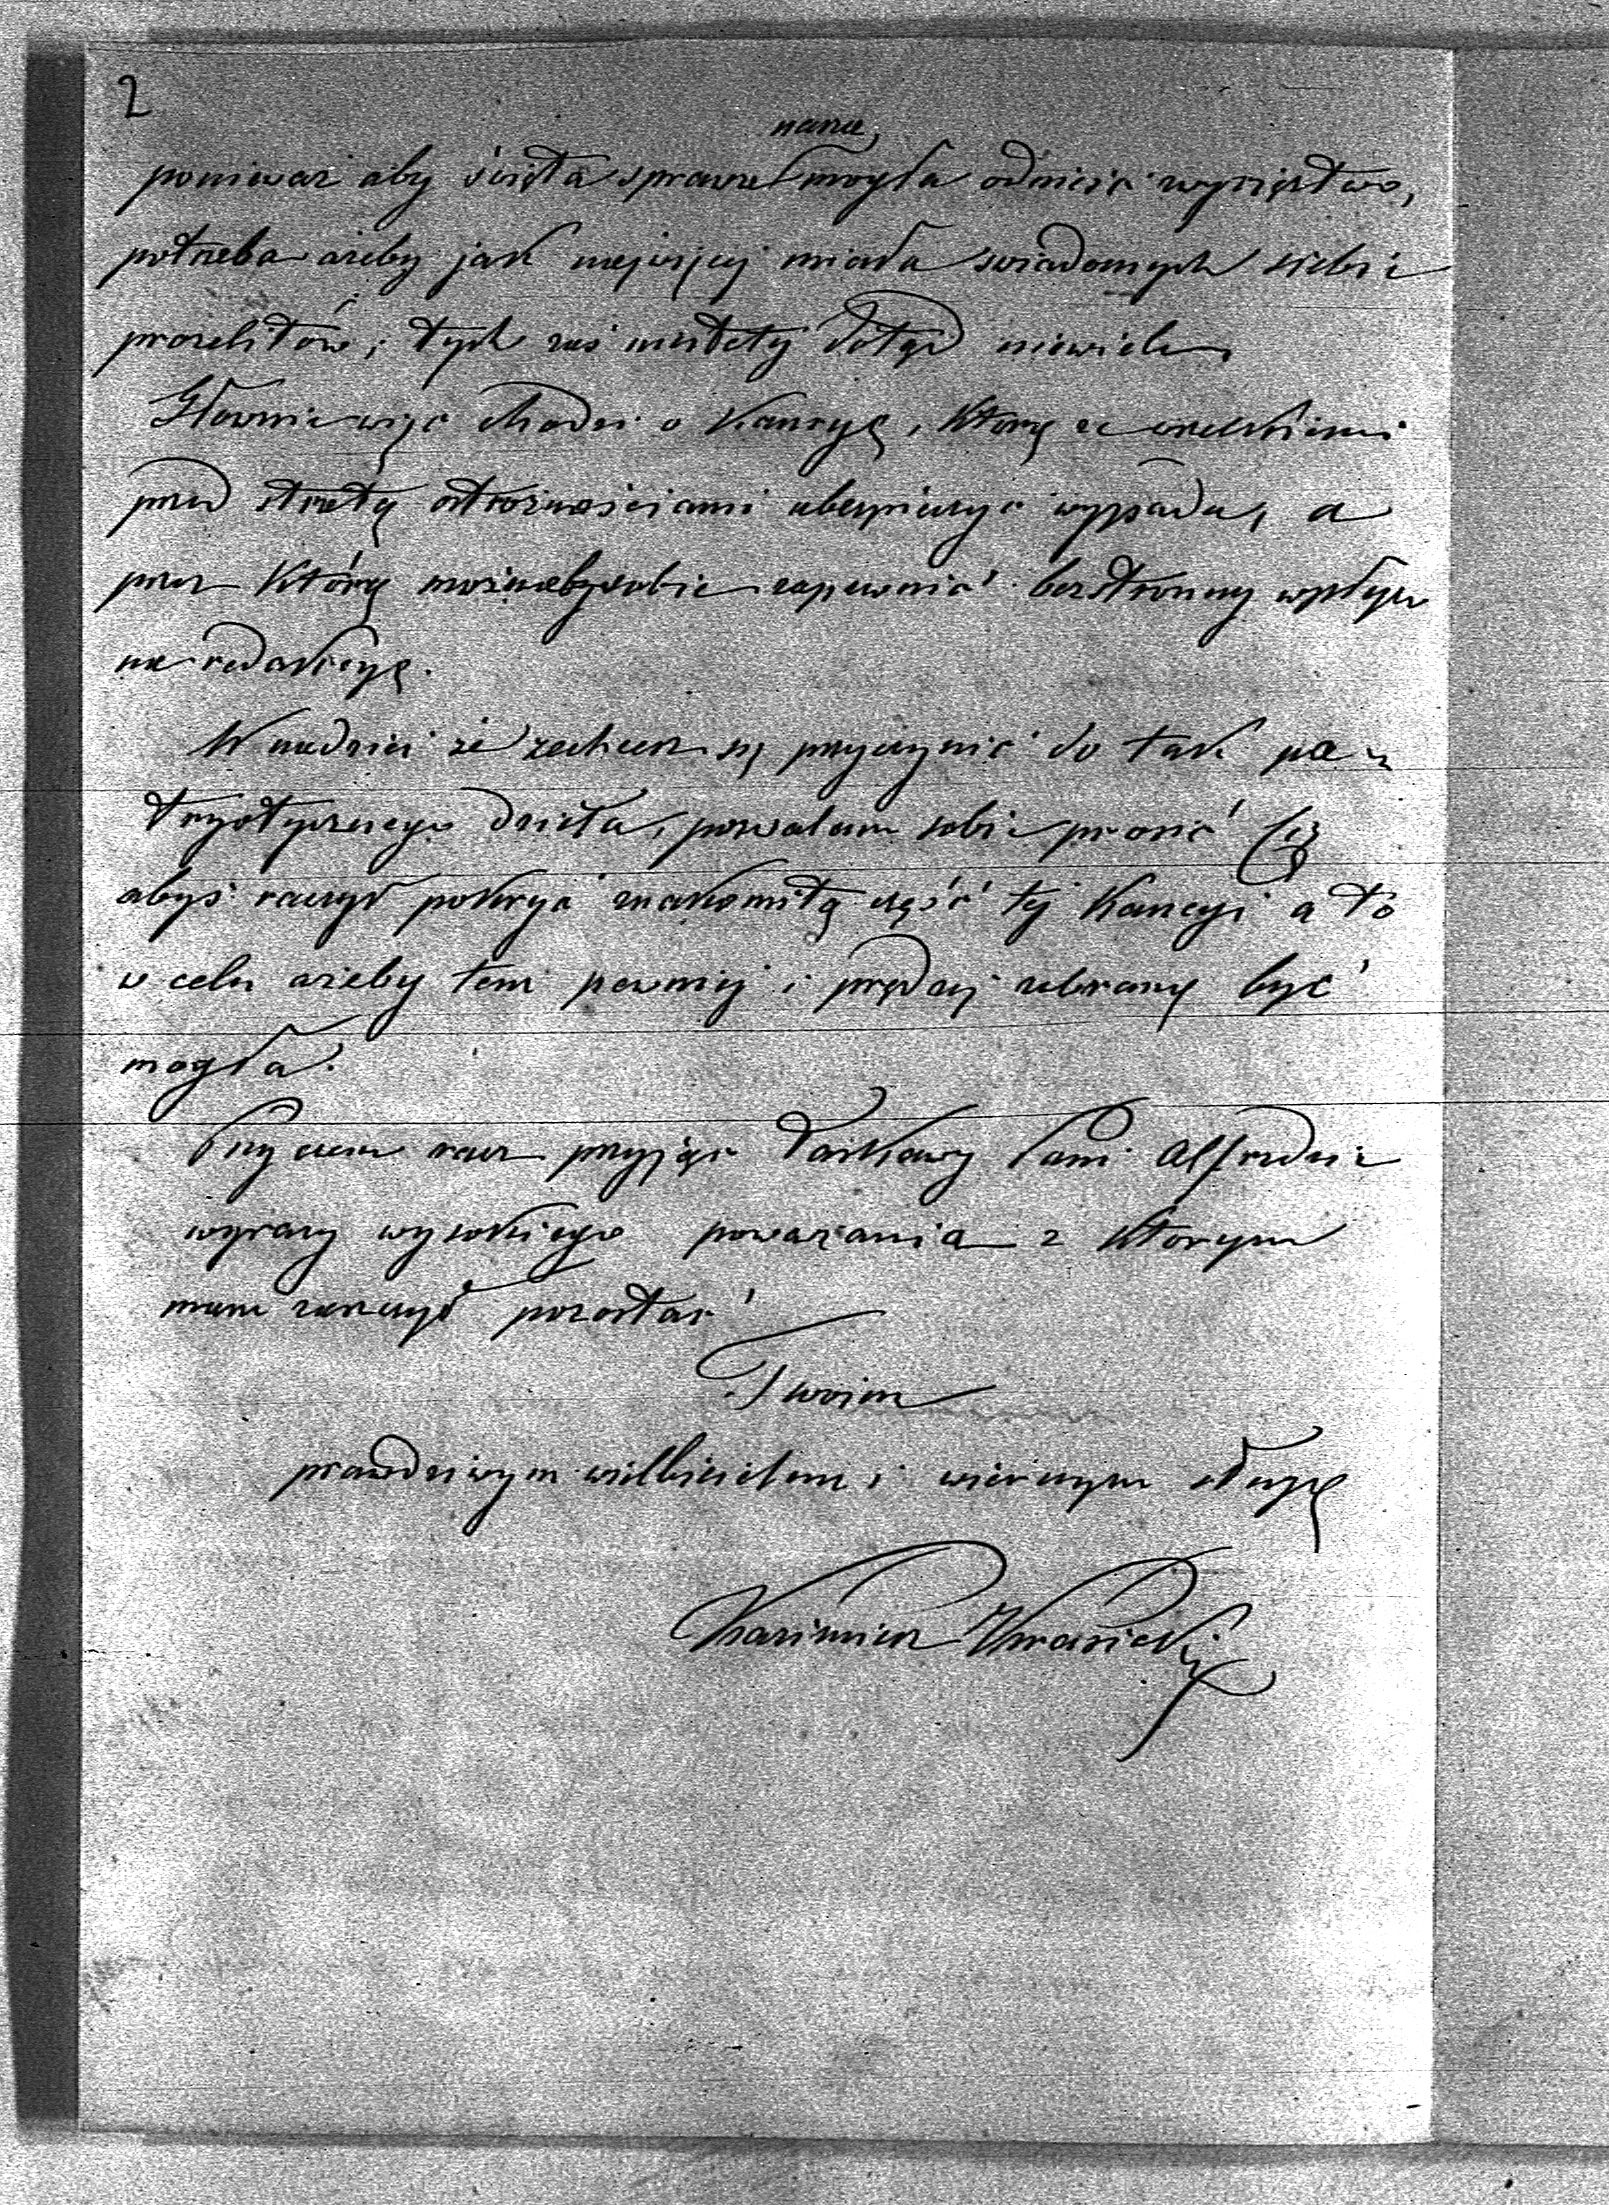 2
nasza
ponieważ aby święta sprawa mogła odnieść zwycięstwo,
potrzeba ażeby jak najwięcej miała świadomych siebie
prozelitów; tych zaś niestety dotąd niewielu
Głównie więc chodzi o Kaucyę, którę ze wszelkiemi
przed stratą ostrożnościami ubezpieczyć wypada, a
przez którę możnaby sobie zapewnić bezstronny wpływ
na redakcyę.
W nadziei że zechcesz się przyczynić do tak pa-
tryotycznego dzieła, pozwalam sobie prosić Cię
abyś raczył pokryć znakomitą część tej Kaucyi a to
w celu ażeby tem pewniej i prędzej zebraną być
mogła.
Przyczem racz przyjąć łaskawy Panie Alfredzie
wyrazy wysokiego poważania z którym
mam zaszczyt pozostać
Twoim
prawdziwym wielbicielem i wiernym sługą
Kazimierz Krasicki